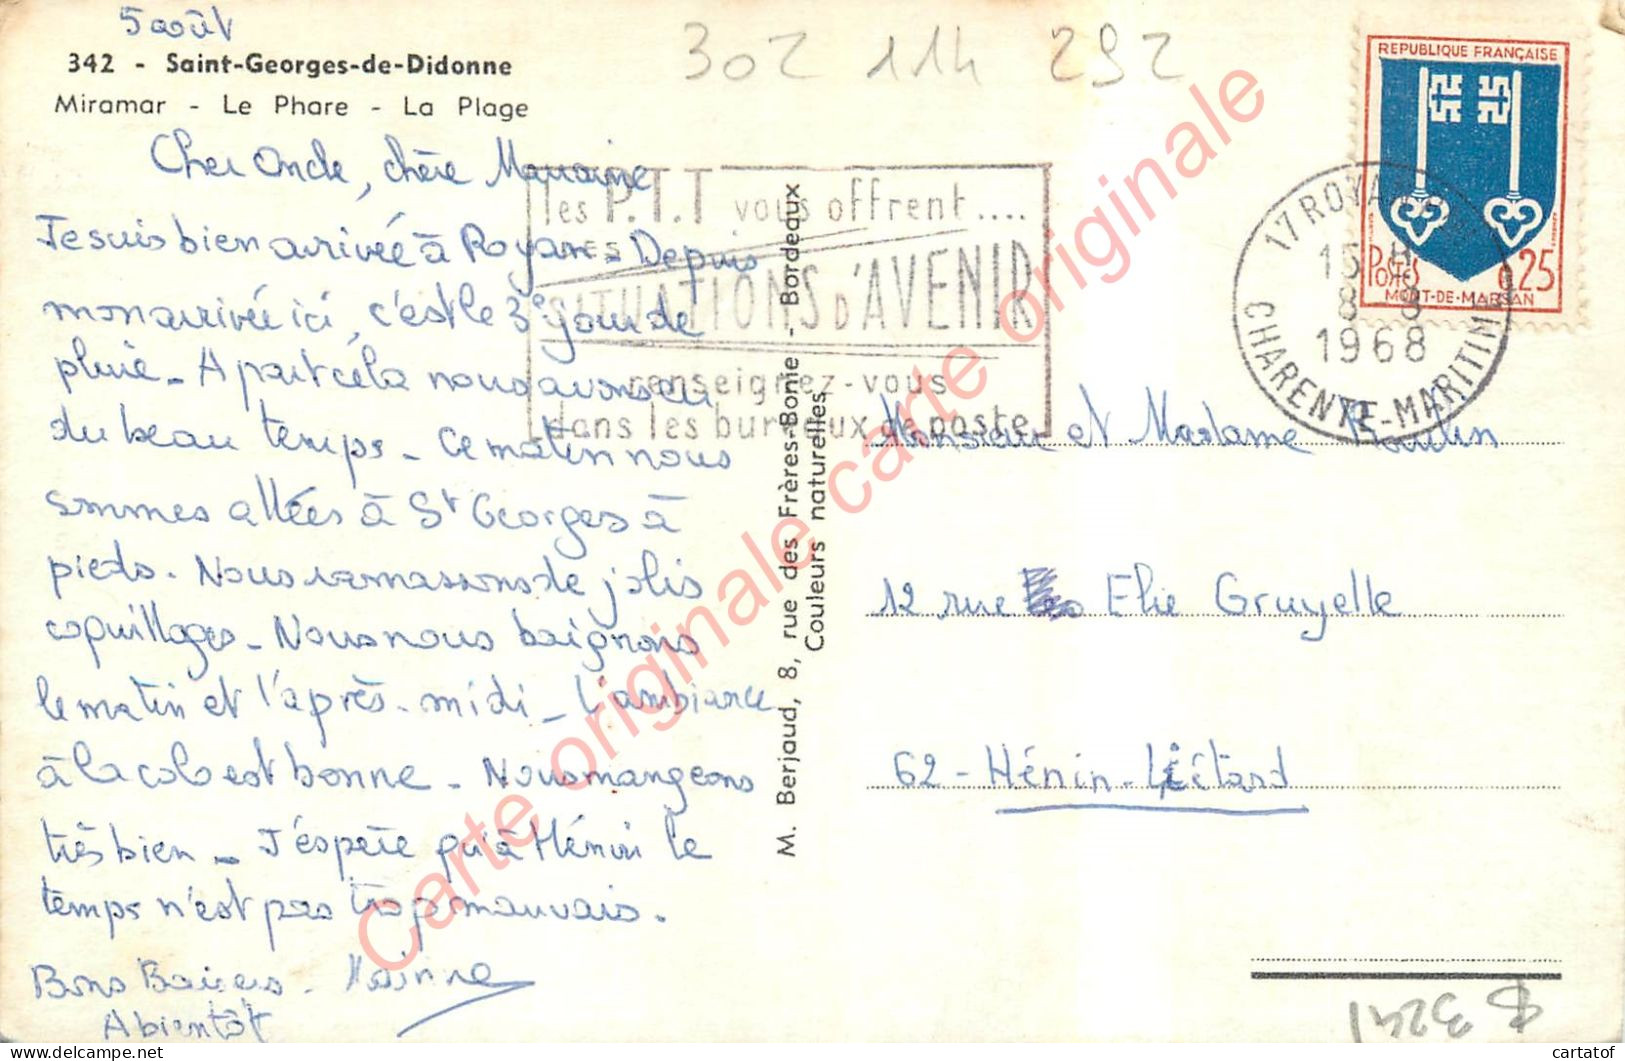 5 août
342 - Saint-Georges-de-Didonne
Miramar - Le Phare - La Plage
302 114 292
Cher Oncle, chère Marraine
Je suis bien arrivée à Royan - Depuis
mon arrivée ici, c'est le 3e jour de
pluie - A part céla nous avons eu
du beau temps - Ce matin nous
sommes allées à St Georges à
pieds. Nous ramassons de jolis
coquillages - Nous nous baignons
le matin et l'après-midi - L'ambiance
à la colo est bonne - Nous mangeons
très bien - J'éspère qu'à Hénin le
temps n'est pas trop mauvais.
Bons Baisers -
A bientôt
les P.T.T vous offrent....
DES
SITUATIONS D'AVENIR
renseignez-vous
dans les bureaux de poste
M. Berjaud, 8, rue des Frères-Bonie - Bordeaux
Couleurs naturelles
REPUBLIQUE FRANÇAISE
Postes 0,25
MONT-DE-MARSAN
17 ROYAN
15 H
8 - 8
1968
CHARENTE-MARITIME
Monsieur et Madame Roulin
12 rue Elie Gruyelle
62 - Hénin-Liétard
3241
Carte originale carte originale carte originale
cartatof